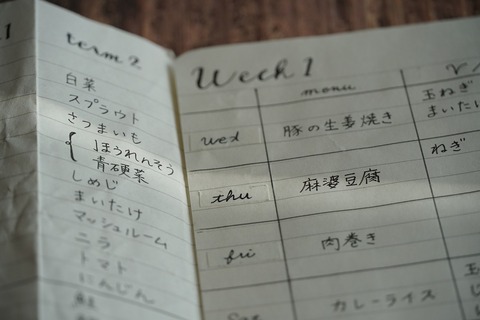 term 2
白菜
スプラウト
さつまいも
ほうれんそう
青硬菜
しめじ
まいたけ
マッシュルーム
ニラ
トマト
にんじん
Week 1
menu
wed
豚の生姜焼き
玉ねぎ
まいたけ
thu
麻婆豆腐
ねぎ
fri
肉巻き
カレーライス